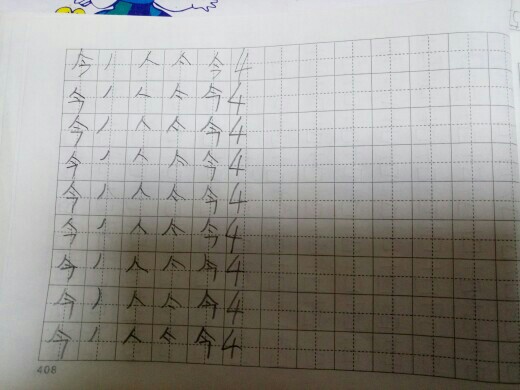 今 丿 人 亽 今 4
今 丿 人 亽 今 4
今 丿 人 亽 今 4
今 丿 人 亽 今 4
今 丿 人 亽 今 4
今 丿 人 亽 今 4
今 丿 人 亽 今 4
今 丿 人 亽 今 4
今 丿 人 亽 今 4
408